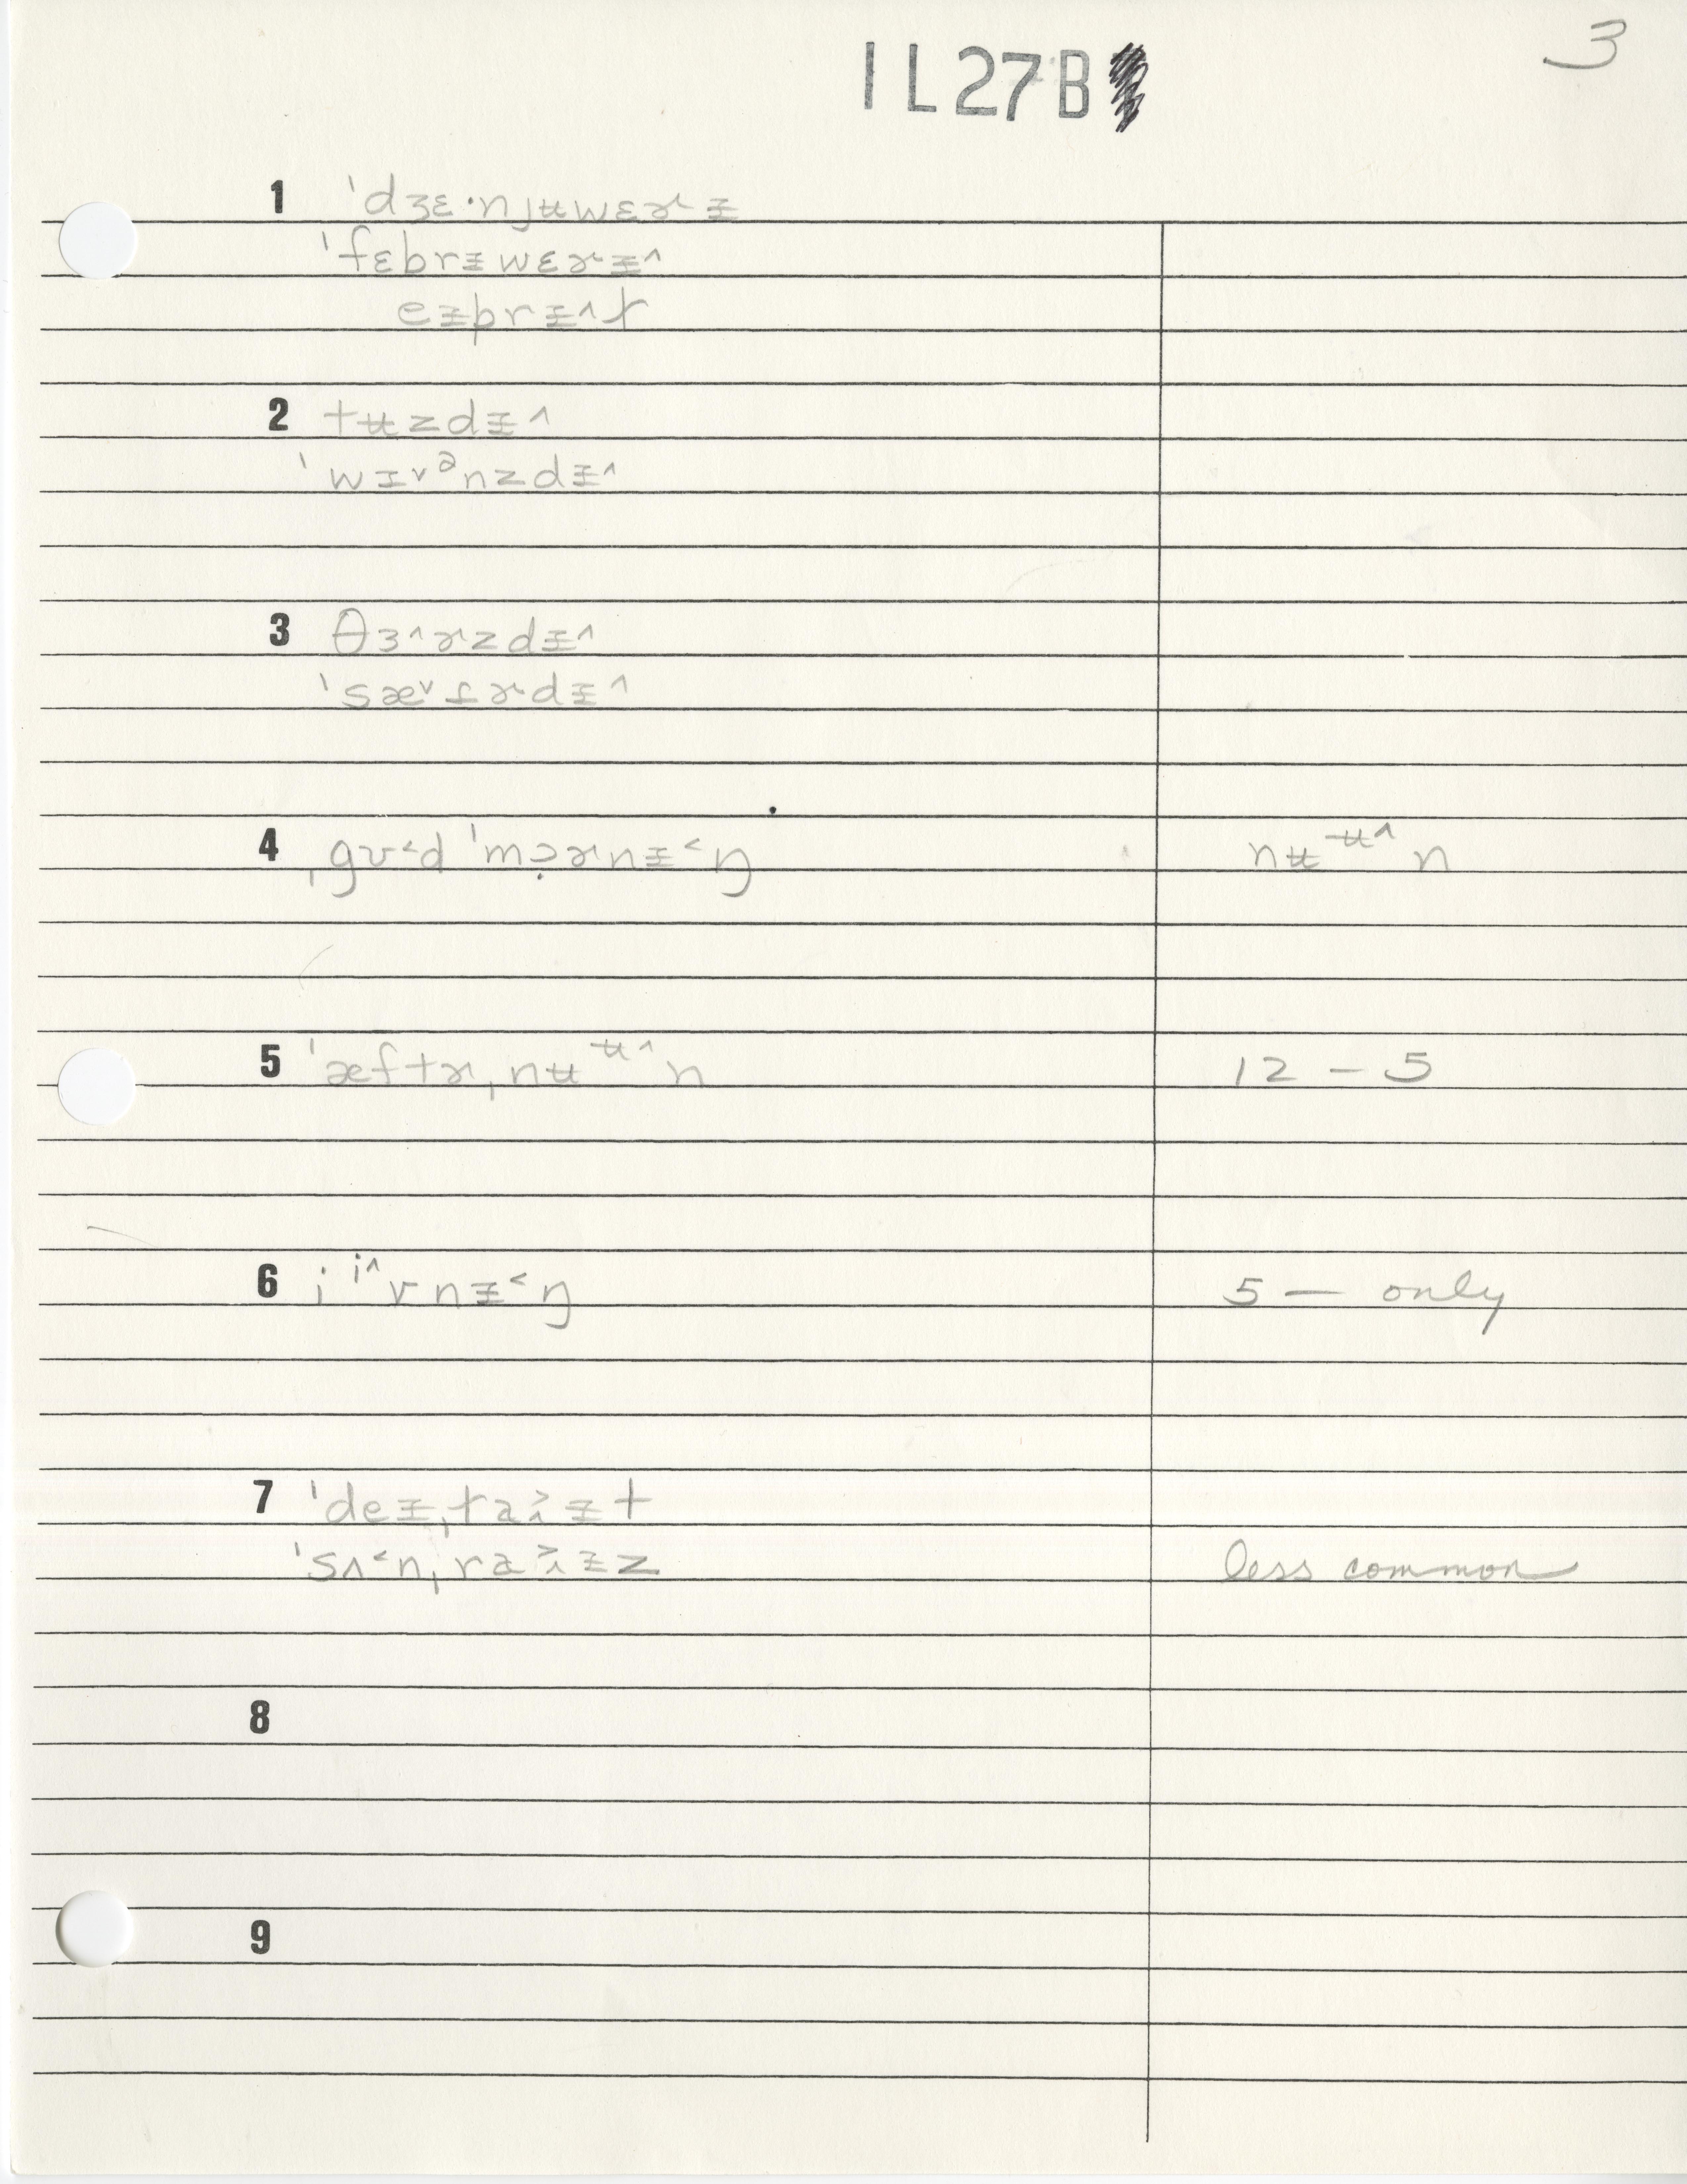 3
IL27B
1 ˈdʒɛ·njʉwɛɚᵻ
ˈfɛbrᵻwɛɚᵻ^
eᵻprᵻ^ɫ
2 tʉzdᵻ^
ˈwɪ˅ᵊnzdᵻ^
3 θɜ^ɚzdᵻ^
ˈsæ˅t̬ɚdᵻ^
4 ˌgʊ˂d ˈmɔ̣ɚnᵻ˂ŋ nʉᶶ^n
5 ˈæftɚˌnʉᶶ^n 12 – 5
6 iⁱ^vnᵻ˂ŋ 5 — only
7 ˈdeᵻˌra˃ᵻt
ˈsʌ˂nˌra˃ᵻz less common
8
9